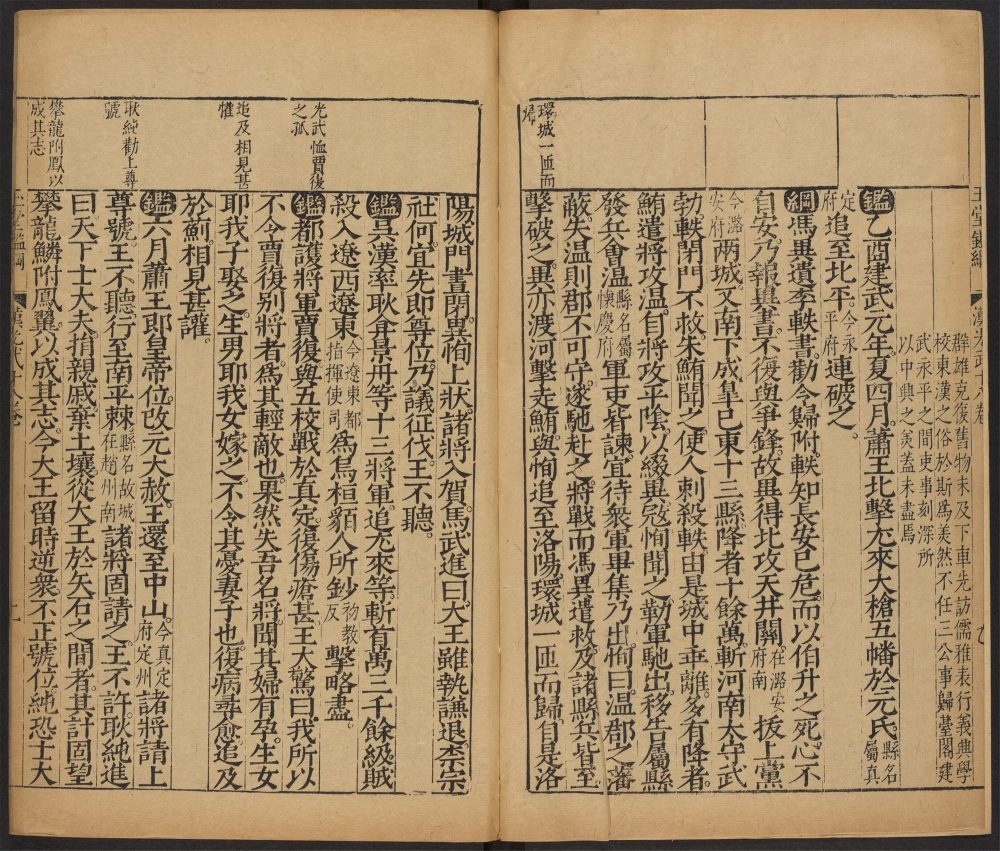 辟雄克復舊物未及下車先訪儒雅表行義典學
校東漢之俗於斯爲美然不任三公事歸臺閣建
武永平之間吏事刻深所
以中典之美蓋未盡焉
鑑乙酉建武元年夏四月蕭王北擊尤來大槍五幡於元氏縣名屬真
定府追至北平今永平府連破之。
綱馮異遺李軼書勸令歸附軼知長安已危而以伯升之死心不
自安乃報異書不復與爭鋒故異得北攻天井關在潞安府南拔上黨
今潞安府兩城又南下成皐已東十三縣降者十餘萬斬河南太守武
勃軼閉門不救朱鮪聞之使人刺殺軼由是城中乖離多有降者
鮪遣將攻温自將攻平陰以綴異寇恂聞之勒軍馳出移告屬縣
發兵會温縣名屬懷慶府軍吏皆諫宜待衆軍畢集乃出恂曰温郡之藩
蔽失温則郡不可守遂馳赴之將戰而馮異遣救及諸縣兵皆至
擊破之異亦渡河擊走鮪與恂追至洛陽環城一匝而歸自是洛
環城一匝而
歸
陽城門晝閉異恂上狀諸將入賀馬武進曰大王雖執謙退柰宗
社何宜先即尊位乃議征伐王不聽。
鑑吳漢率耿弇景丹等十三將軍追尤來等斬首萬三千餘級賊
殺入遼西遼東今遼東都指揮使司爲烏桓貊人所鈔初教反擊略盡
鑑都護將軍賈復與五校戰於真定復傷瘡甚王大驚曰我所以
不令賈復别將者爲其輕敵也果然失吾名將聞其婦有孕生女
耶我子娶之生男耶我女嫁之不令其憂妻子也復病尋愈追及
於薊相見甚讙。
鑑六月蕭王即皇帝位改元大赦王還至中山今真定府定州諸將請上
尊號王不聽行至南平棘縣名故城在趙州南諸將固請之王不許耿純進
曰天下士大夫捐親戚棄土壤從大王於矢石之間者其計固望
攀龍鱗附鳳翼以成其志今大王留時逆衆不正號位純恐士大
光武恤賈復
之孤
追及相見甚
懽
耿純勸上尊
號
攀龍附鳳以
成其志